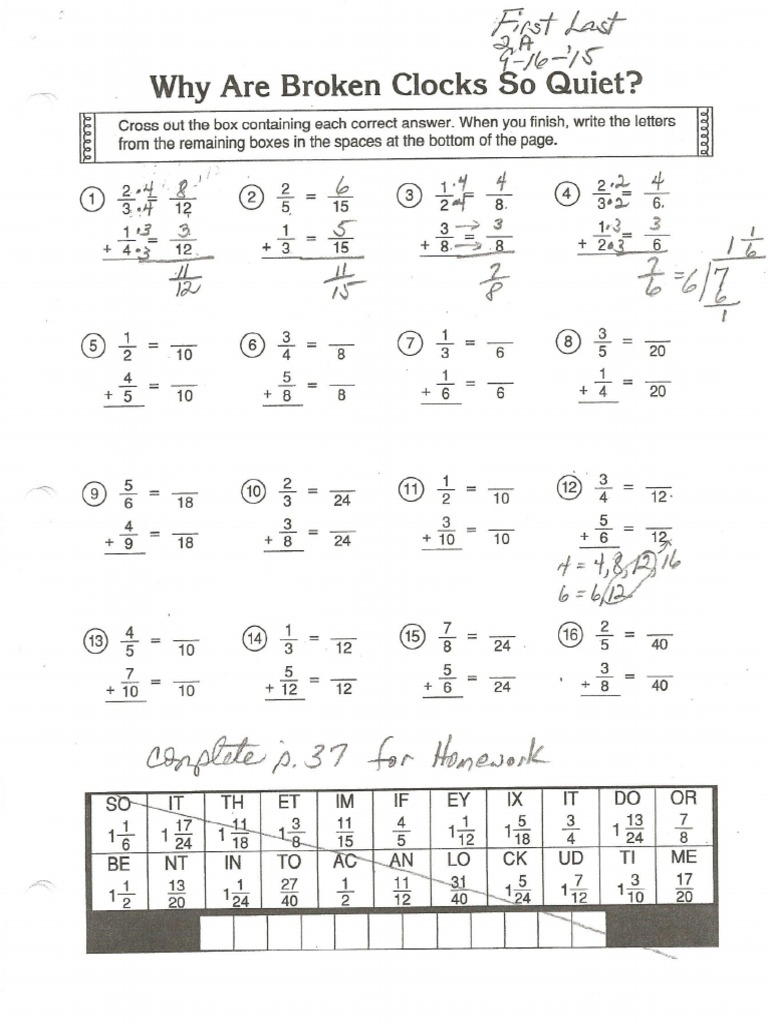 First Last
2A
9-16-'15
Why Are Broken Clocks So Quiet?
Cross out the box containing each correct answer. When you finish, write the letters
from the remaining boxes in the spaces at the bottom of the page.
① 2/3 ·4/·4 = 8/12
+ 1/4 ·3/·3 = 3/12
11/12
② 2/5 = 6/15
+ 1/3 = 5/15
11/15
③ 1/2 ·4/·4 = 4/8
+ 3/8 = 3/8
7/8
④ 2/3 ·2/·2 = 4/6
+ 1/2 ·3/·3 = 3/6
7/6 = 6)7 1 1/6
6
1
⑤ 1/2 = /10
+ 4/5 = /10
⑥ 3/4 = /8
+ 5/8 = /8
⑦ 1/3 = /6
+ 1/6 = /6
⑧ 3/5 = /20
+ 1/4 = /20
⑨ 5/6 = /18
+ 4/9 = /18
⑩ 2/3 = /24
+ 3/8 = /24
⑪ 1/2 = /10
+ 3/10 = /10
⑫ 3/4 = /12
+ 5/6 = /12
4 = 4, 8, 12, 16
6 = 6, 12
⑬ 4/5 = /10
+ 7/10 = /10
⑭ 1/3 = /12
+ 5/12 = /12
⑮ 7/8 = /24
+ 5/6 = /24
⑯ 2/5 = /40
+ 3/8 = /40
complete p. 37 for Homework
SO IT TH ET IM IF EY IX IT DO OR
1 1/6 1 17/24 1 11/18 1 3/8 11/15 4/5 1 1/12 1 5/18 3/4 1 13/24 7/8
BE NT IN TO AC AN LO CK UD TI ME
1 1/2 13/20 1 1/24 27/40 1/2 11/12 31/40 1 5/24 1 7/12 1 3/10 17/20